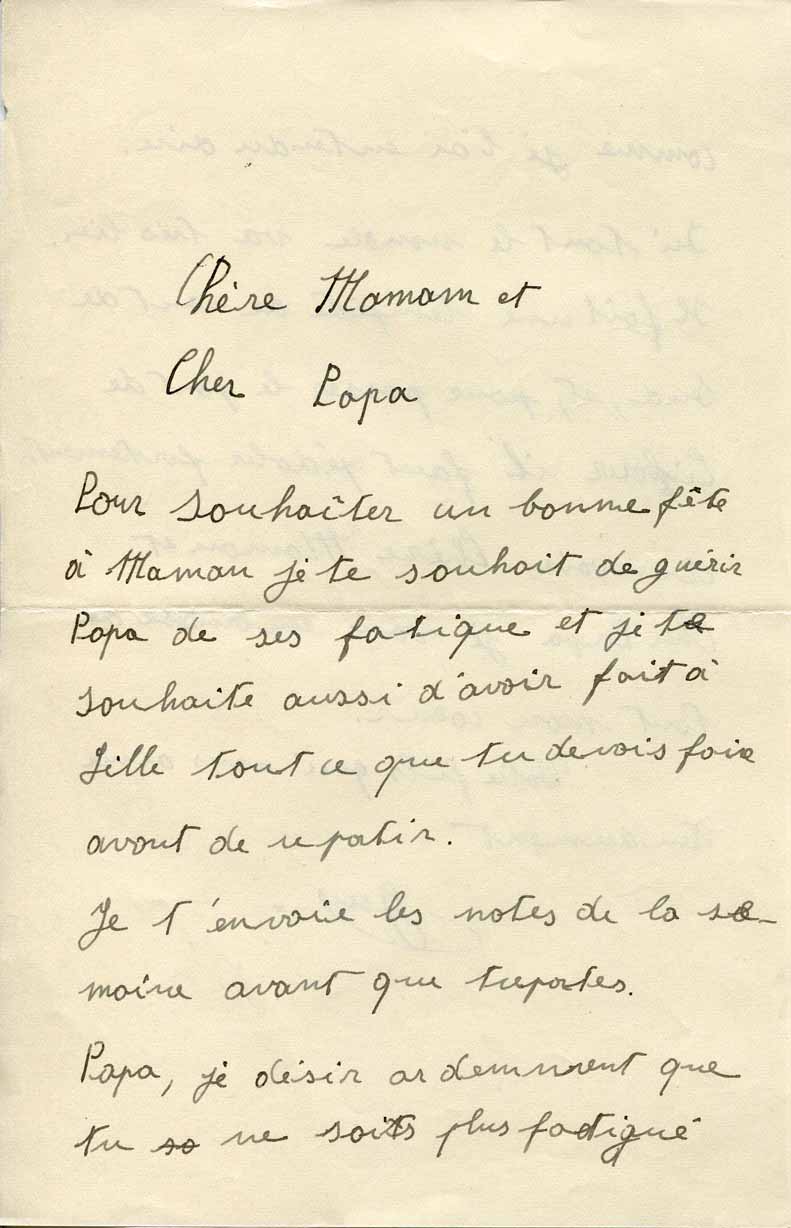 Chère Mamam et
Cher Papa
Pour souhaîter un bonne fête
à Maman je te souhait de guérir
Papa de ses fatigue et je te
souhaite aussi d'avoir fait à
Lille tout ce que tu devois faire
avant de repatir.
Je t'envoie les notes de la se-
maine avant que tu partes.
Papa, je désir ardemment que
tu ne soits plus fatigué